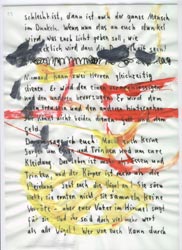 schlecht ist, dann ist auch der ganze Mensch
im Dunkeln. Wenn nun das an euch dunkel
wird, was euch Licht geben soll, wie
schrecklich wird dann die Dunkelheit sein!
Niemand kann zwei Herren gleichzeitig
dienen. Er wird den einen
und den anderen bevorzugen. Er wird dem
einen treu sein und den anderen hintergehen.
Ihr könnt nicht beiden dienen: Gott und dem
Geld.
Darum sage ich euch: Macht euch keine
Sorgen um Essen und Trinken und um eure
Kleidung. Das Leben ist mehr als Essen und
Trinken, und der Körper ist mehr als die
Kleidung. Seht euch die Vögel an! Sie säen
nicht, sie ernten nicht, sie sammeln keine
Vorräte - aber euer Vater im Himmel sorgt
für sie. Und ihr seid doch viel mehr wert
als alle Vögel! Wer von euch kann durch